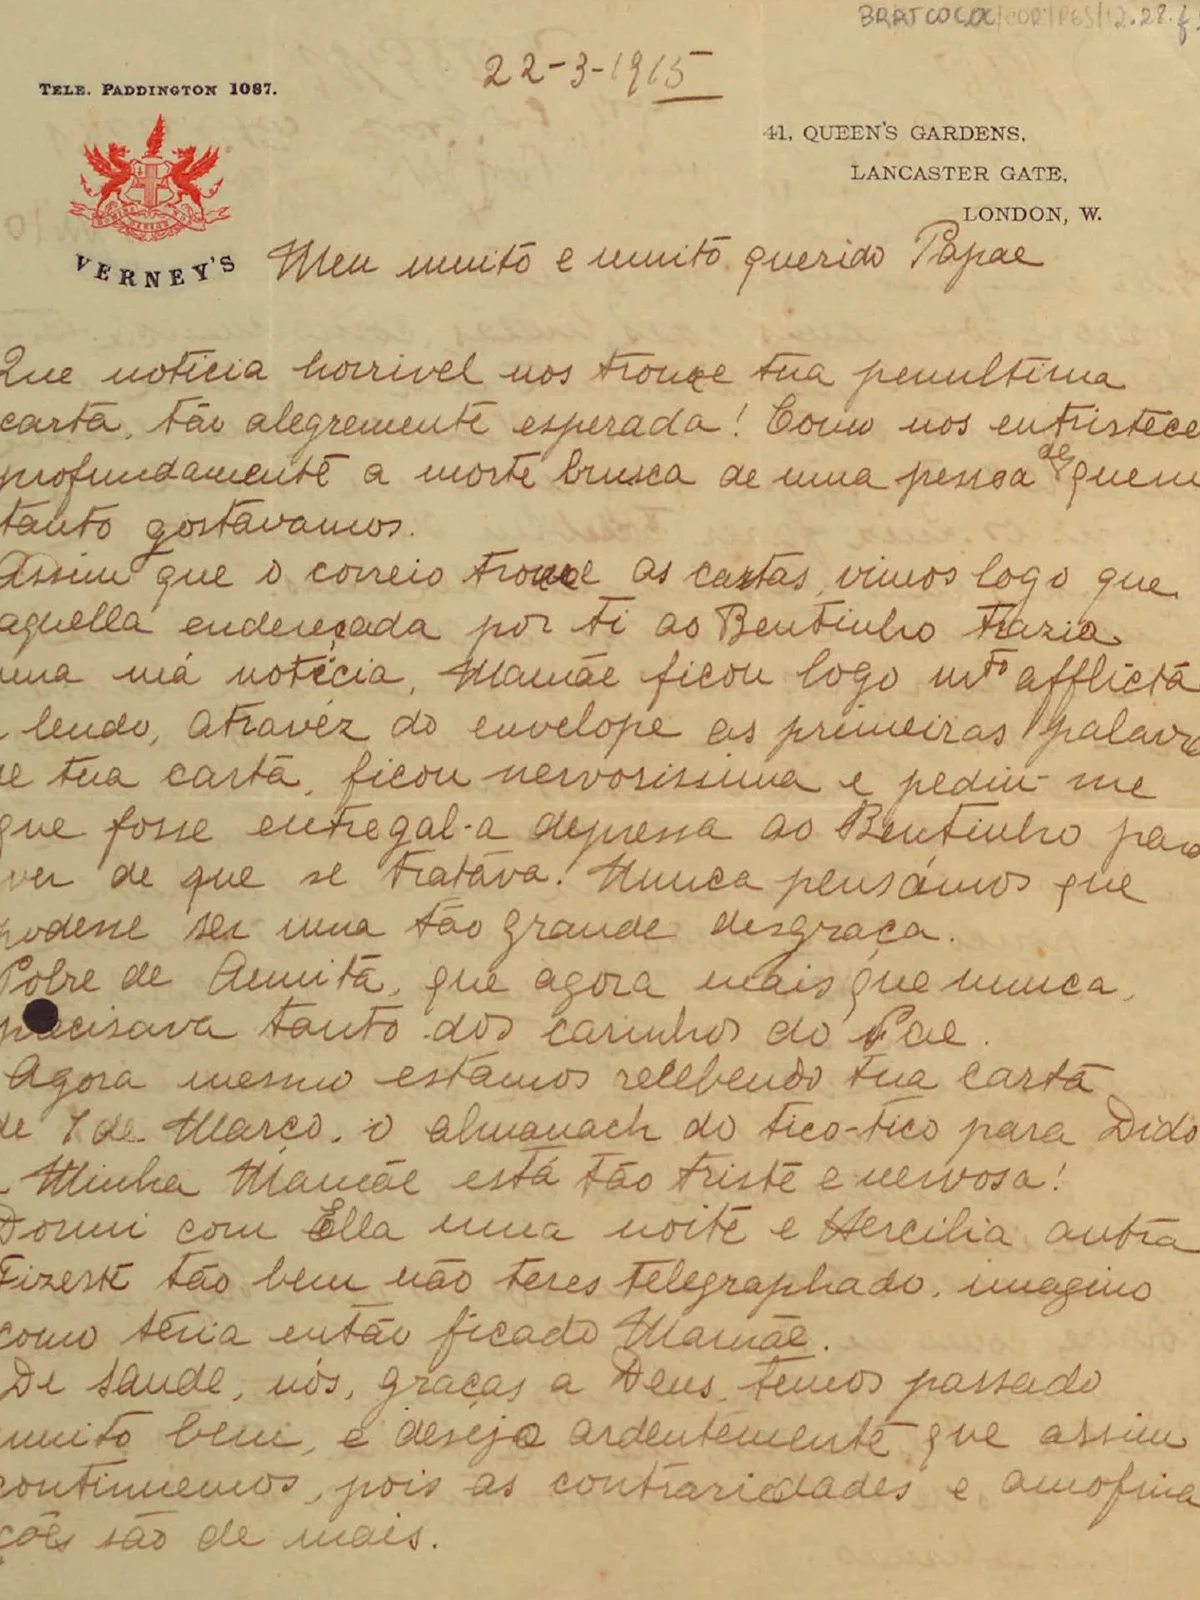 BRRJCOC
22-3-1915
TELE. PADDINGTON 1087.
41, QUEEN'S GARDENS,
LANCASTER GATE,
LONDON, W.
VERNEY'S
Meu muito e muito querido Papae
Que noticia horrivel nos trouxe tua penultima
carta, tão alegremente esperada! Como nos entristece
profundamente a morte brusca de uma pessoa de quem
tanto gostavamos.
Assim que o correio trouxe as cartas, vimos logo que
aquella endereçada por ti ao Bentinho trazia
uma má noticia, Mamãe ficou logo mto afflicta
lendo, atravéz do envelope as primeiras palavr
e tua carta, ficou nervosissima e pediu-me
que fosse entregal-a depressa ao Bentinho para
ver de que se tratava! Nunca pensámos que
podesse ser uma tão grande desgraça.
Pobre de Annita, que agora mais que nunca,
precisava tanto dos carinhos do Pae.
Agora mesmo estamos recebendo tua carta
de 1 de Março, o almanach do tico-tico para Dido
Minha Mamãe está tão triste e nervosa!
Dormi com Ella uma noite e Hercilia outra
Fizeste tão bem não teres telegraphado, imagino
como teria então ficado Mamãe.
De saude, nós, graças a Deus, temos passado
muito bem, e desejo ardentemente que assim
continuemos, pois as contrariedades e amofina
ções são de mais.